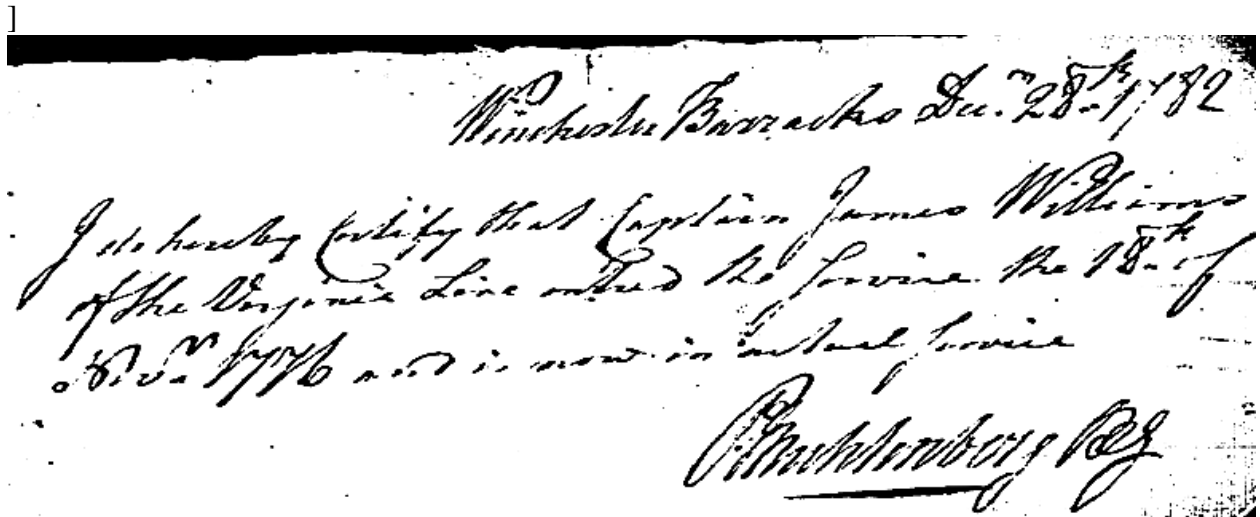 ]
Winchester Barracks Decm. 28th. 1782
I do hereby Certify that Captain James Williams
of the Virginia Line entred the Service the 18th. of
Novr. 1776 and is now in actual Service
P Muhlenberg B G